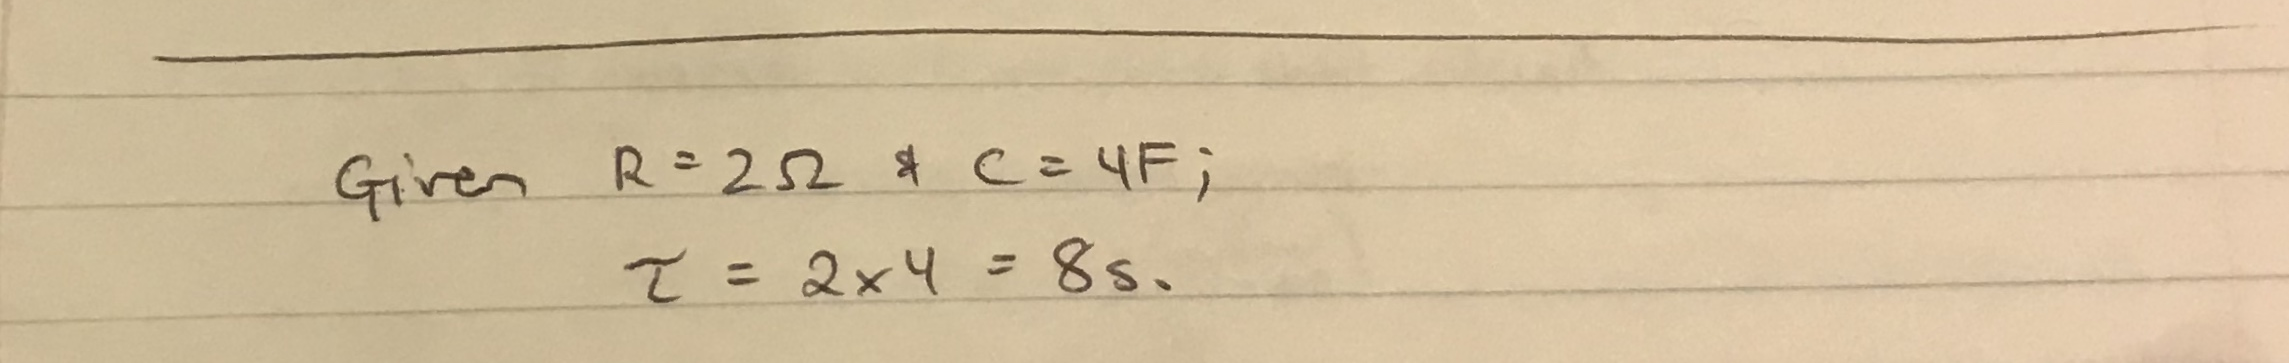 Given R = 2Ω & C = 4F;
τ = 2×4 = 8s.